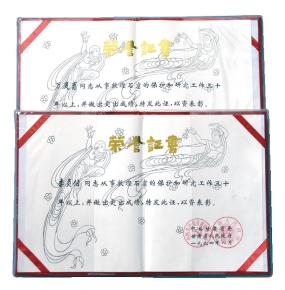 荣誉证书
同志从事敦煌石窟的保护和研究工作三十
年以上，并做出突出成绩，特发此证，以资表彰。
荣誉证书
李贞伯同志从事敦煌石窟的保护和研究工作三十
年以上，并做出突出成绩，特发此证，以资表彰。
中共甘肃省委
甘肃省人民政府
一九九四年八月